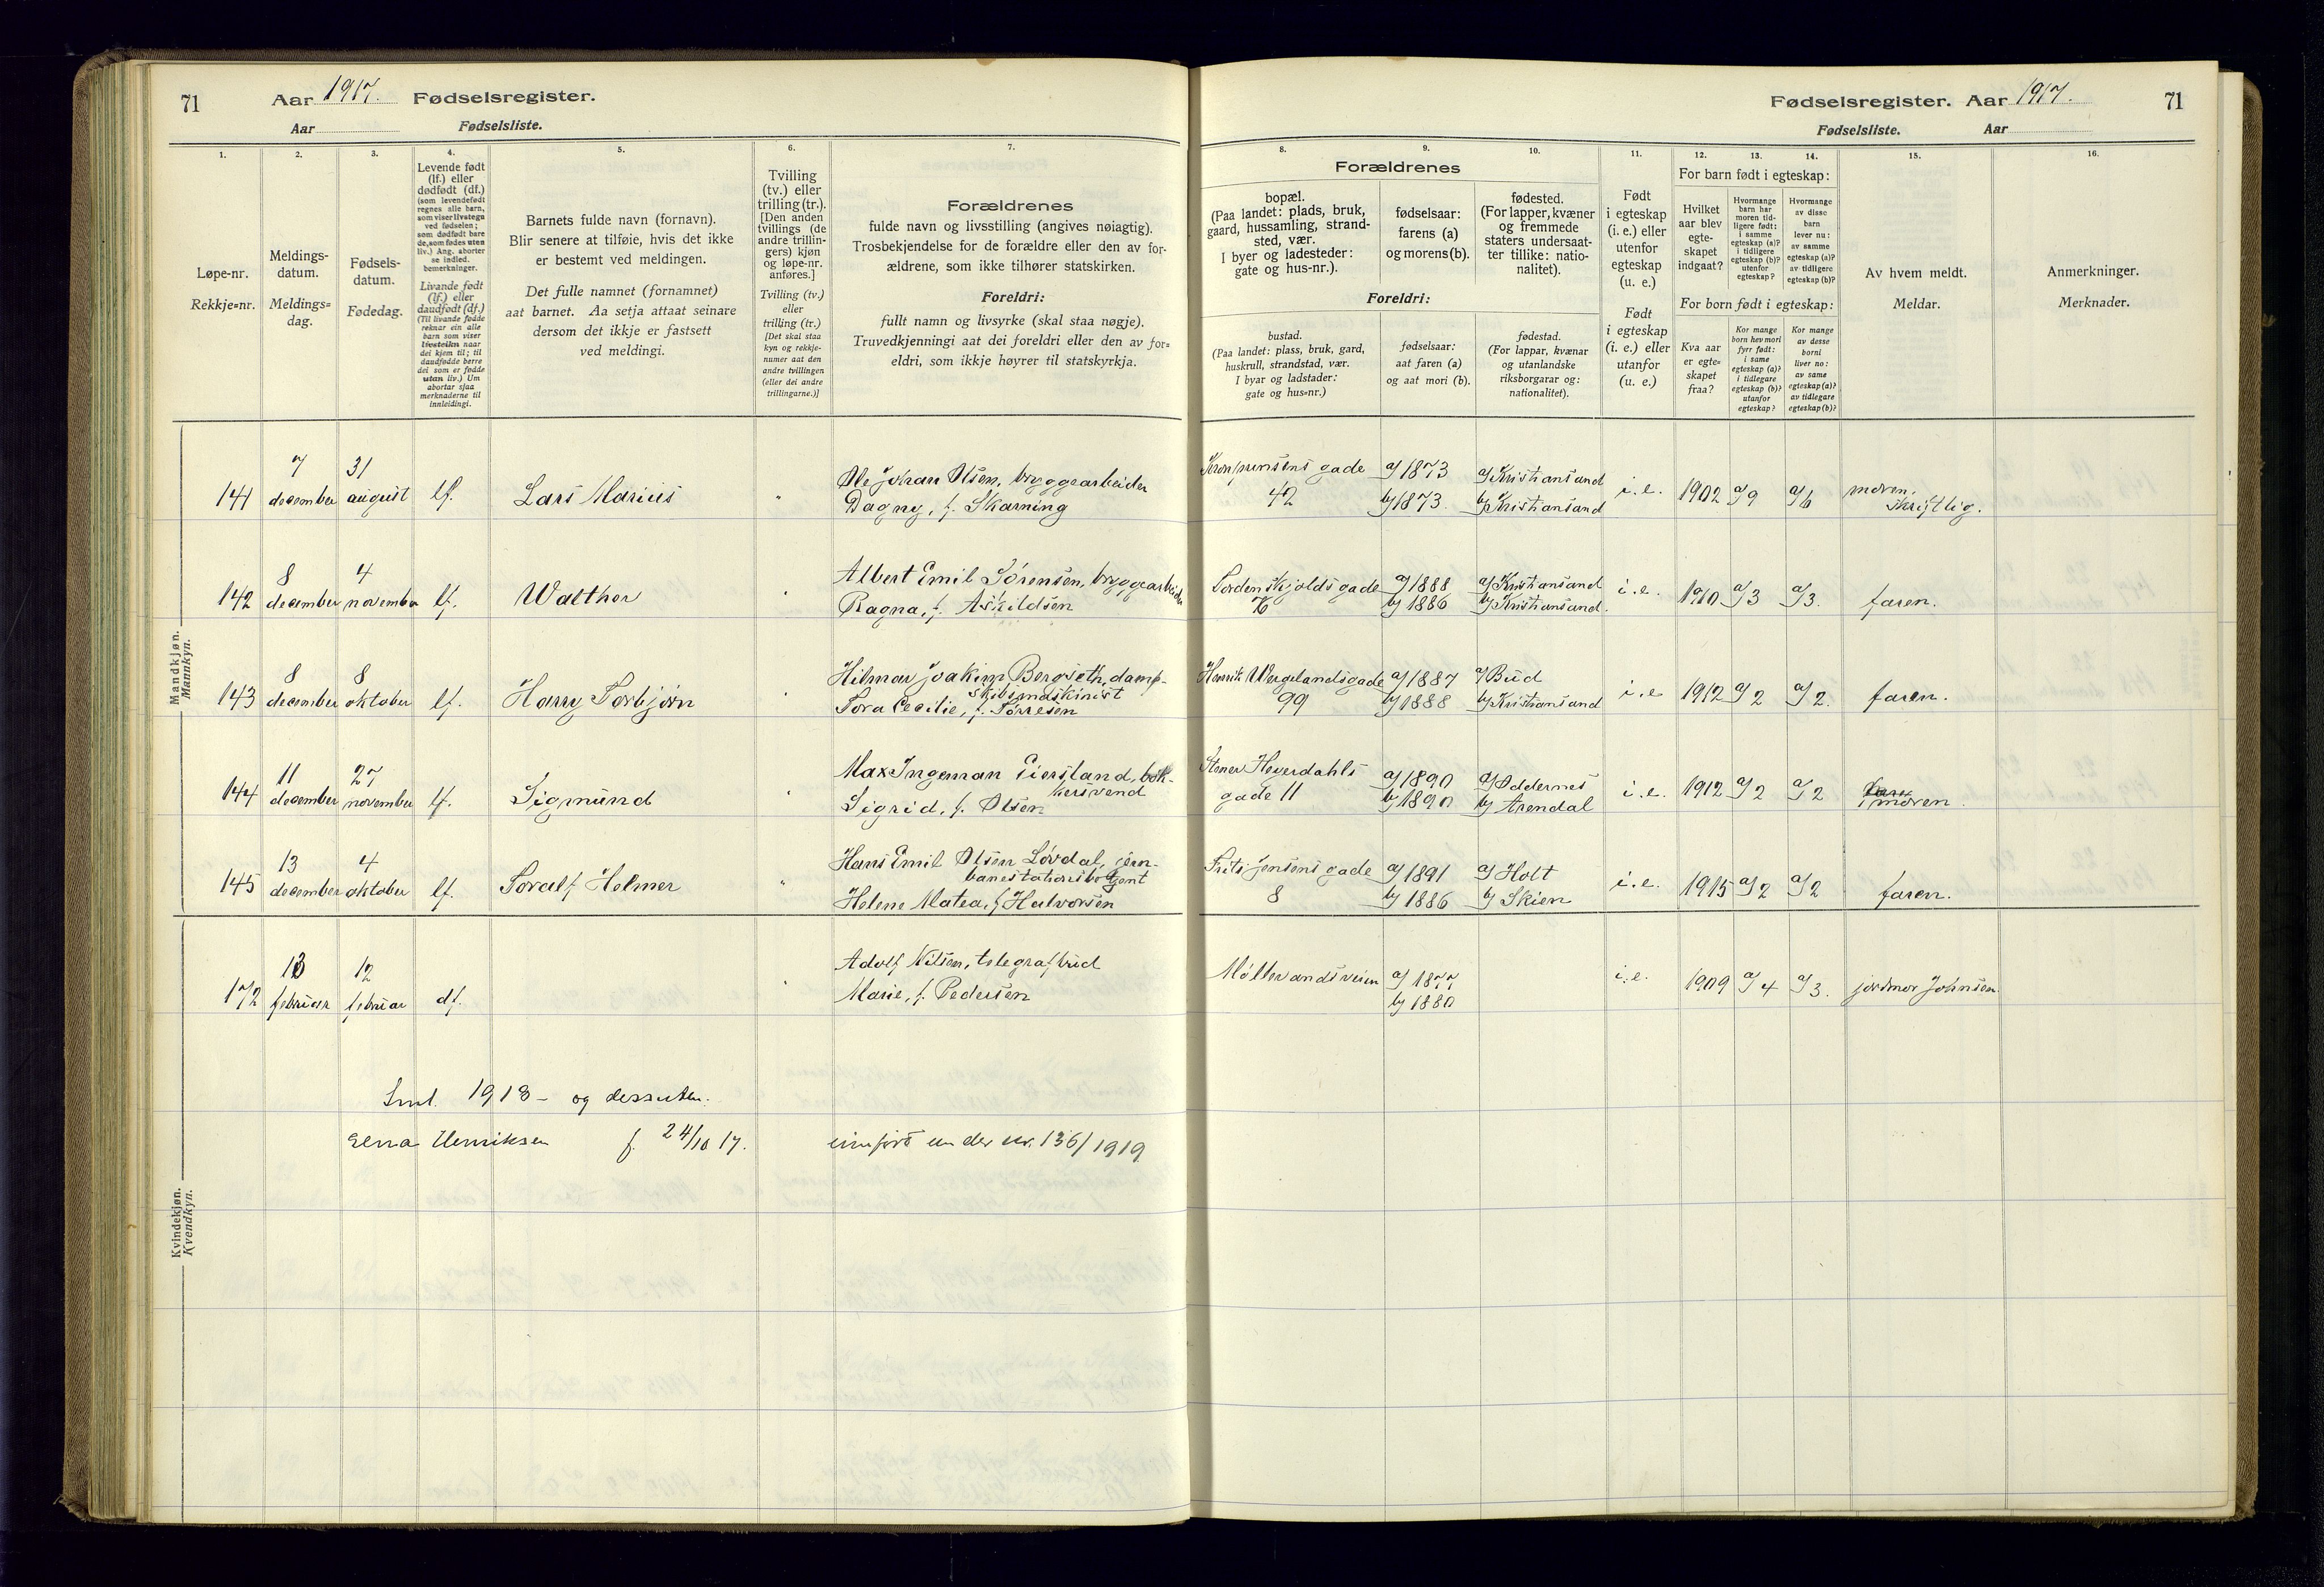 71 Aar 1917. Fødselsregister.
Aar Fødselsliste.
Fødselsregister. Aar 1917. 71
Fødselsliste. Aar
1. 2. 3. 4. 5. 6. 7. 8. 9. 10. 11. 12. 13. 14. 15. 16.
Løpe-nr.
Rekkje=nr.
Meldings-
datum.
Meldings=
dag.
Fødsels-
datum.
Fødedag.
Levende født
(lf.) eller
dødfødt (df.)
(som levendefødt
regnes alle barn,
som viser livstegn
ved fødselen;
som dødfødt bare
de, som fødes uten
liv.) Ang. aborter
se indled.
bemerkninger.
Livande født
(lf.) eller
daudfødt (df.)
(Til livande fødde
reknar ein alle
barn som viser
livsteikn naar
dei kjem til; til
daudfødde berre
dei som er fødde
utan liv.) Um
abortar sjaa
merknaderne til
innleidingi.
Barnets fulde navn (fornavn).
Blir senere at tilføie, hvis det ikke
er bestemt ved meldingen.
Det fulle namnet (fornamnet)
aat barnet. Aa setja attaat seinare
dersom det ikkje er fastsett
ved meldingi.
Tvilling
(tv.) eller
trilling (tr.).
[Den anden
tvillings (de
andre trillin-
gers) kjøn
og løpe-nr.
anføres.]
Tvilling (tv.)
eller
trilling (tr.)
[Det skal staa
kyn og rekkje-
numer aat den
andre tvillingen
(eller dei andre
trillingarne.)]
Forældrenes
fulde navn og livsstilling (angives nøiagtig).
Trosbekjendelse for de forældre eller den av for-
ældrene, som ikke tilhører statskirken.
Foreldri:
fullt namn og livsyrke (skal staa nøgje).
Truvedkjenningi aat dei foreldri eller den av for=
eldri, som ikkje høyrer til statskyrkja.
Forældrenes
bopæl.
(Paa landet: plads, bruk,
gaard, hussamling, strand-
sted, vær.
I byer og ladesteder:
gate og hus-nr.).
fødselsaar:
farens (a)
og morens (b).
fødested.
(For lapper, kvæner
og fremmede
staters undersaat-
ter tillike: natio-
nalitet).
Foreldri:
bustad.
(Paa landet: plass, bruk, gard,
huskrull, strandstad, vær.
I byar og ladstader:
gate og hus=nr.)
fødselsaar:
aat faren (a)
og aat mori (b).
fødestad.
(For lappar, kvænar
og utanlandske
riksborgarar og:
nationalitet).
Født
i egteskap
(i. e.) eller
utenfor
egteskap
(u. e.)
Født
i egteskap
(i. e.) eller
utanfor
egteskap
(u. e.)
For barn født i egteskap:
Hvilket
aar blev
egte-
skapet
indgaat?
Hvormange
barn har
moren tid-
ligere født:
i samme
egteskap (a)?
i tidligere
egteskap (b)?
utenfor
egteskap?
Hvormange
av disse
barn
lever nu:
av samme
egteskap (a)?
av tidligere
egteskap (b)?
For born født i egteskap:
Kva aar
er egte=
skapet
fraa?
Kor mange
born hev mori
fyrr født:
i same
egteskap (a)?
i tidlegare
egteskap (b)?
utanfor
egteskap?
Kor mange
av desse
borni
liver no:
av same
egteskap (a)?
av tidlegare
egteskap (b)?
Av hvem meldt.
Meldar.
Anmerkninger.
Merknader.
Mandkjøn.
Mannkyn.
7 31
141 december august lf. Lars Marius " Ole Johan Olsen, bryggearbeider
Dagny, f. Skarning
Kronprinsens gade
42
a) 1873
b) 1873.
a) Kristiansand
b) Kristiansand
i. e. 1902 a) 9 a) 6 moren,
skriftlig.
8 4
142 december november lf. Walther " Albert Emil Sørensen, bryggearbeider
Ragna, f. Askildsen
Tordenskjolds gade
a) 1888
b) 1886
a) Kristiansand
b) Kristiansand.
i. e. 1910 a) 3 a) 3. faren.
8 8
143 december oktober lf. Harry Torbjørn " Hilmar Joakim Bergseth, damp-
skibsmaskinist
Tora Cecilie, f. Torresen
Henrik Wergelandsgade
99
a) 1887
b) 1888
a) Bud
b) Kristiansand
i. e. 1912 a) 2 a) 2. faren.
11 27
144 december november lf. Sigmund " Max Ingeman Eiersland, bok-
kersvend
Sigrid, f. Olsen
Stener Heyerdahls
gade 11
a) 1890
b) 1890
a) Oddernes
b) Arendal
i. e. 1912 a) 2 a) 2 moren.
13 4
145 december oktober lf. Toralf Helmer " Hans Emil Olsen Løvdal, jern-
banestationsbetjent
Helene Matea, f. Halvorsen
Frits Jensens gade
8
a) 1891
b) 1886
a) Holt
b) Skien
i. e. 1915 a) 2 a) 2 faren.
Kvindekjøn.
Kvendkyn.
13 12
172 februar februar df. " Adolf Nilsen, telegrafbud
Marie, f. Pedersen
Møllevandsveien
a) 1877
b) 1880
i. e. 1909 a) 4 a) 3. jordmor Johnsen.
1918 - og dessuten.
Erna Henriksen f. 24/10 17. innført under nr. 136/1919